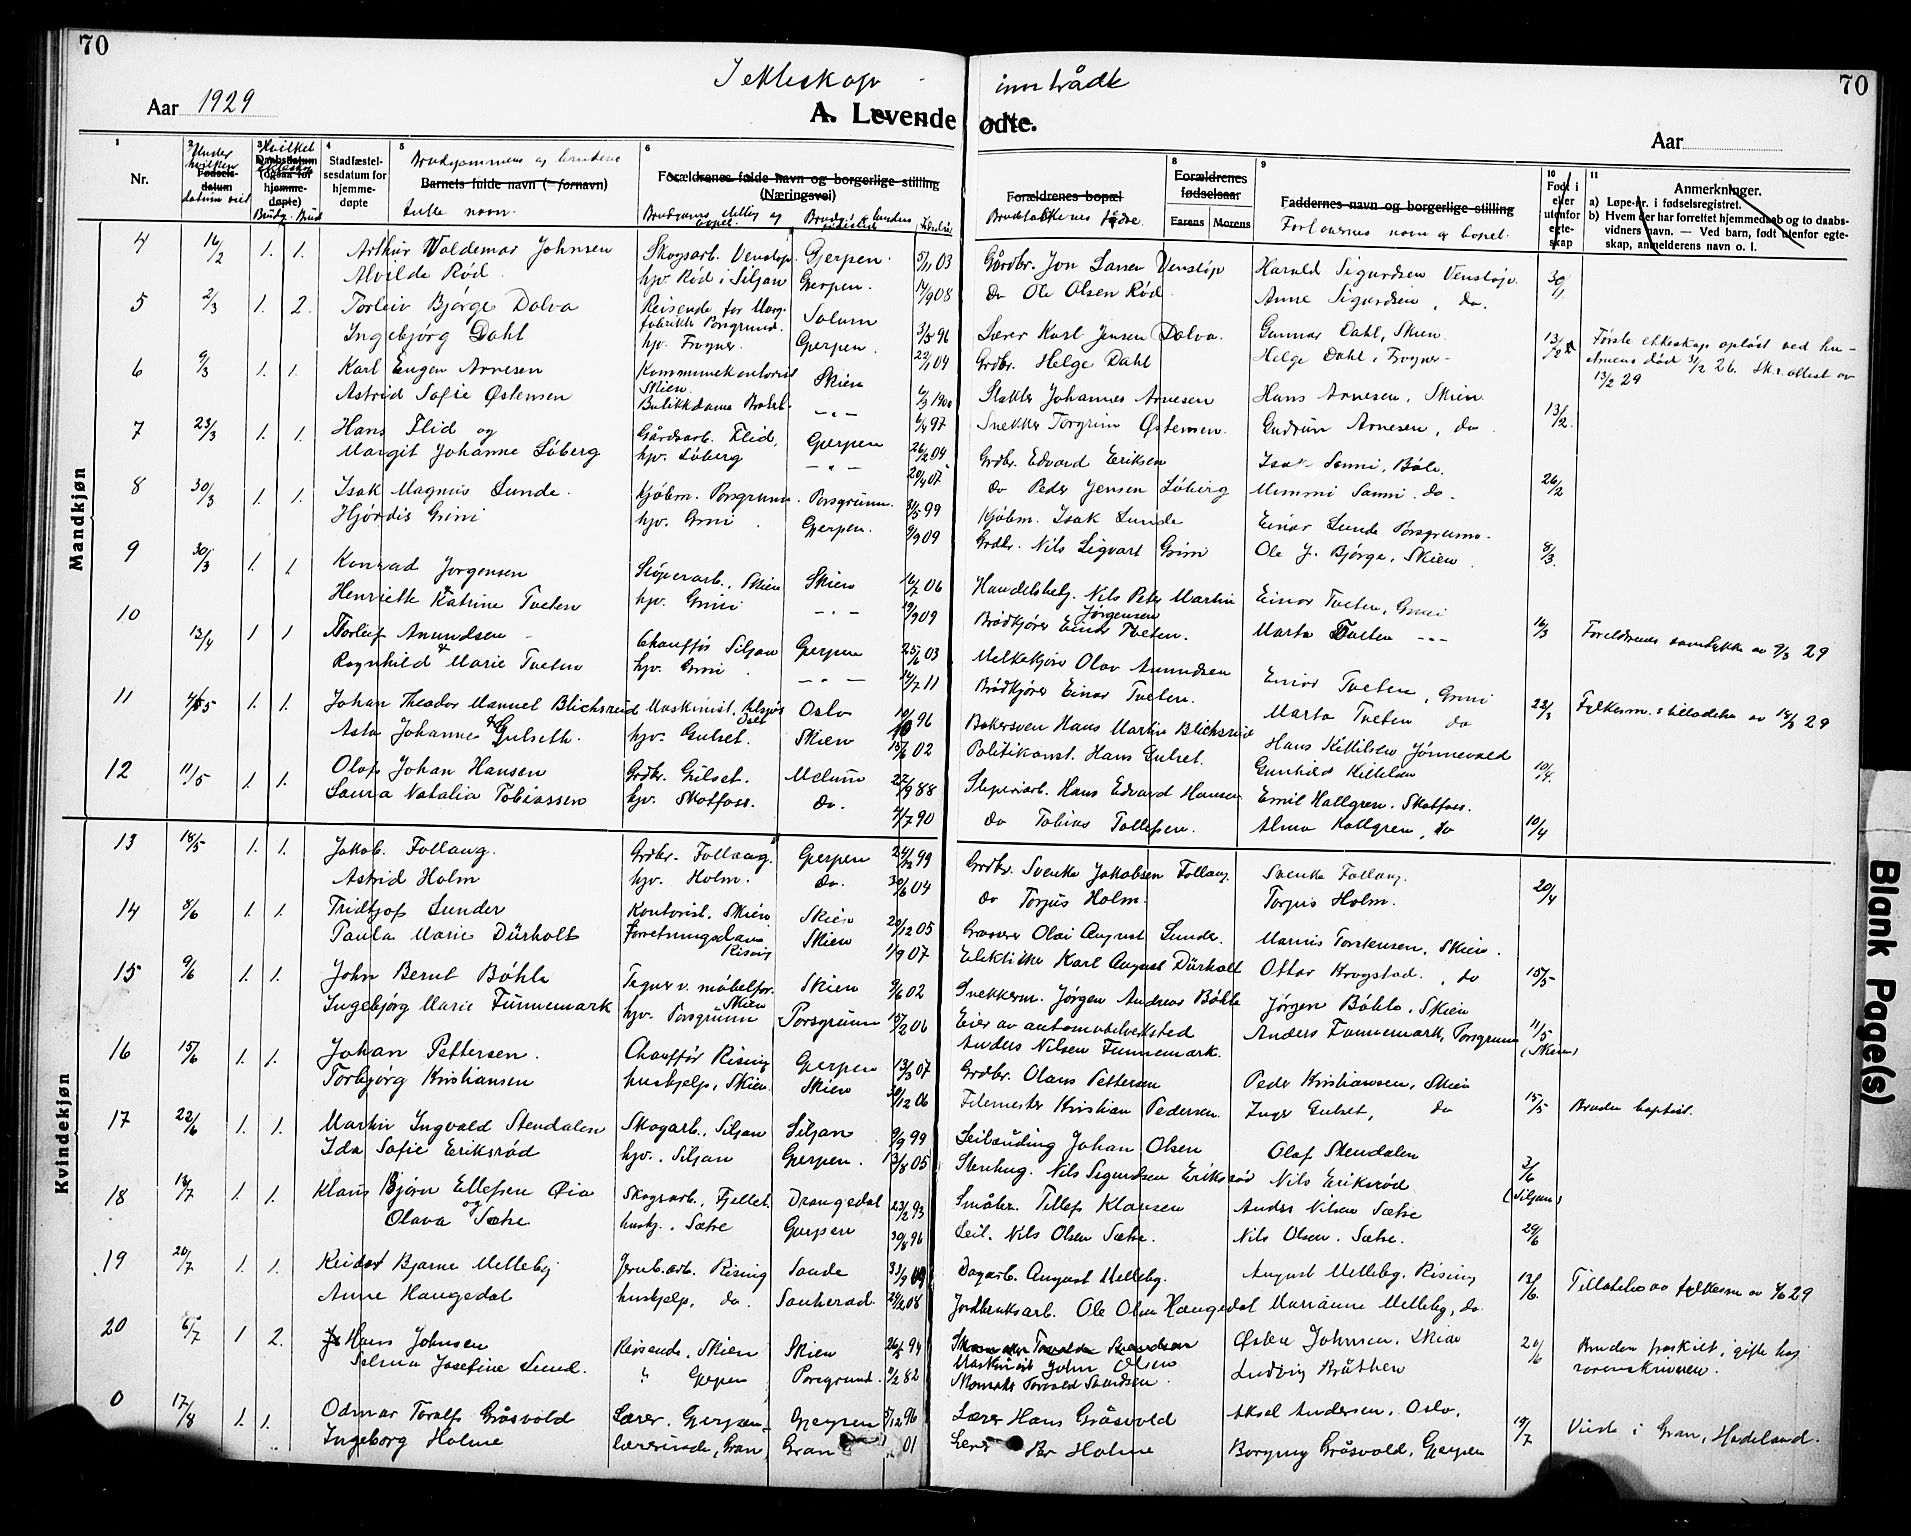 70
70
I ekteskap inntrådte
Aar 1929
A. Levende fødte.
Aar
1 2 3 4 5 6 8 9 10 11
Nr.
Under hvilken datum viet
Fødselsdatum
Hvilket
Daabsdatum (ogsaa for hjemmedøpte)
Brudg. Brud
Stadfæstelsesdatum for hjemmedøpte
Brudgommens og brudens fulle navn.
Barnets fulde navn (fornavn)
Forældrenes fulde navn og borgerlige stilling (Næringsvei)
Forældrenes bopæl
Brudfolkenes fedre.
Forældrenes fødselsaar
Farens Morens
Faddernes navn og borgerlige stilling
Forlovernes navn og bopel.
Født i eller utenfor egteskap
Anmerkninger.
a) Løpe-nr. i fødselsregistret.
b) Hvem der har forrettet hjemmedaab og to daabsvidners navn. — Ved barn, født utenfor egteskap, anmelderens navn o. l.
Mandkjøn
4 16/2 1. 1. Arthur Valdemar Johnsen Skogsarb. Venstøp. Gjerpen. 5/11 03 Gårdbr. Jon Larsen Venstøp Harald Sigurdsen Venstøp. 30/1
Alvilde Rød. hjv. Rød i Siljan Gjerpen. 14/9 08 do Ole Olsen Rød. Anne Sigurdsen, do.
5 2/3 1. 2. Torleiv Bjørge Dolva Reisende for Marg. fabrikk Porsgrund. Solum 3/5 96 Lærer Karl Jensen Dolva. Gunnar Dahl, Skien. 13/2 Første ekteskap opløst ved hu-
Ingebjørg Dahl hjv. Frogner. Gjerpen. 22/1 04 Grdbr. Helge Dahl Helge Dahl, Frogner struens død 31/2 26. Sk.attest av 13/2 29
6 9/3 1. 1. Karl Eugen Arnesen Kommunekontorist Skien. Skien 6/3 1900 Slakter Johannes Arnesen Hans Arnesen, Skien 13/2.
Astrid Sofie Østensen Butikkdame -"- 6/4 97 Snekker Torgrim Østensen. Gudrun Arnesen, do.
7 23/3 1. 1. Hans Flid og Gårdsarb. Flid, Gjerpen 26/2 04 Grdbr. Edvard Eriksen Isak Sanni, Bøle. 26/2
Margit Johanne Løberg hjv. Løberg -"- 20/4 07 do Peder Jensen Løberg Mimmi Sanni. do.
8 30/3 1. 1. Isak Magnus Lunde. Kjøbm. Porsgrunn. Porsgrunn. 31/5 99 Kjøbm. Isak Lunde Einar Lunde Porsgrunn. 8/3.
Hjørdis Grini hjv. Grini. Gjerpen. 9/9 09 Grdbr. Nils Sigvart Grini Ole J. Bjørge, Skien.
9 30/3 1. 1. Konrad Jørgensen Støperarb. Skien Skien 16/7 06 Handelsbetj. Nils Peter Martin Jørgensen Einar Tveten, Grini 16/3 Foreldrenes samtykke av 7/3 29
Henriette Katrine Tveten hjv. Grini -"- 19/9 09 Brødkjører Einar Tveten. Marta Tveten -"-
10 13/4 1 1 Torleif Amundsen Chauffør Siljan Gjerpen 25/6 03 Melkekjører Olav Amundsen Einar Tveten, Grini 22/3 Fylkesm.s tilladelse av 18/3 29
Ragnhild & Marie Tveten hjv. Grini. -"- 14/7 11 Brødkjører Einar Tveten. Marta Tveten do
11 4/5 1. 1. Johan Theodor Manuel Blichsrud Maskinist, Oslo Oslo 10/10 96 Bakersven Hans Martin Blichsrud Hans Kittilsen Jønnevald 10/4.
Asta Johanne Gulseth. hjv. Gulset. Skien 15/6 02 Politikonst. Hans Gulset. Gunhild Kittilsen
12 11/5 1. 1. Olaf Johan Hansen Grdbr. Gulset. Melum 27/9 88 Sliperiarb. Hans Edvard Hansen Emil Hallgren. Skotfoss. 10/4
Laura Natalia Tobiassen hjv. Skotfoss. do. 4/7 90 do Tobias Tollefsen. Alma Hallgren, do
Kvindekjøn
13 18/5 1. 1. Jakob Follaug. Grdbr. Follaug. Gjerpen 24/12 99 Grdbr. Svenke Jakobsen Follaug. Svenke Follaug. 20/4
Astrid Holm hjv. Holm. do. 30/6 04 do Torjus Holm. Torjus Holm.
14 8/6 1. 1. Fridtjof Lunder Kontorist. Skien Skien 22/12 05 Grosserer Olai August Lunde. Marius Torstensen, Skien. 15/5
Paula Marie Dürholt Forretningsdame Rising Skien 11/9 07 Elektriker Karl August Dürholt Ottar Krogstad., do
15 9/6 1. 1. John Bernt Bøhle Tegner v. møbelfor. Skien Skien 9/6 02 Snekkerm. Jørgen Andreas Bøhle Jørgen Bøhle, Skien 11/5 (Skien)
Ingebjørg Marie Funnemark hjv. Porsgrunn Porsgrunn 15/2 06 Eier av automobilverksted Anders Nilsen Funnemark. Anders Funnemark, Porsgrunn
16 15/6 1. 1. Johan Pettersen. Chauffør Rising Gjerpen 13/3 07 Grdbr. Olaus Pettersen Peder Kristiansen, Skien 15/5 Bruden baptist.
Torbjørg Kristiansen hushjelp, Skien. Skien 30/12 06 Filemester Kristian Pedersen. Inger Gulset, do
17 22/6 1. 1. Martin Ingvald Stendalen Skogarb., Siljan Siljan 9/9 99 Leilending Johan Olsen Olaf Stendalen 3/6 (Siljan)
Ida Sofie Eriksrød hjv., Siljan Gjerpen. 13/8 05 Stenhug. Nils Sigurdsen Eriksrød Nils Eriksrød
18 14/7 1. 1. Klaus Bjørn Ellefsen Øia og Skogsarb., Fjellet. Drangedal 23/2 93 Småbr. Tellef Klausen Anders Nilsen Sætre 29/6
Olava Sætre hushj., Sætre Gjerpen 30/8 96 Leil. Nils Olsen Sætre. Nils Olsen. Sætre.
19 20/7 1. 1. Reidar Bjarne Melleby Jernb.arb. Rising Sande 09 Dagarb. August Melleby. August Melleby. Rising 13/6. Tillatelse av fylkesm av 4/6 29
Anne Haugedal hushjelp, do. Sauherad. 24/2 08 Jordbruksarb. Ole Olsen Haugedal Marianne Melleby, do.
20 6/7 1 2. Hans Johnsen Reisende. Skien Skien 26/5 94 Maskinist John Olsen Østen Johnsen, Skien 20/6 Bruden fraskilt, gifte hos
Selma Josefine Lund. " Gjerpen Porsgrund. 9/2 82 Skomaker Torvald Svendsen. Ludvig Bråthen sorenskriveren.
0 17/8 1. 1. Odmar Toralf Gråsvold Lærer. Gjerpen Gjerpen 5/12 96 Lærer Hans Gråsvold Aksel Andersen, Oslo. 19/7 Viede i Gran, Hadeland.
Ingeborg Holme lærerinde, Gran, Gran 01 Lærer Per Holme Borgny Gråsvold, Gjerpen
Blank Page(s)